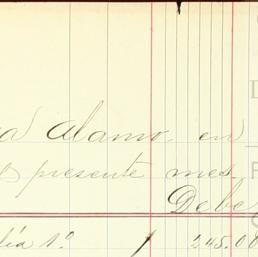 Alamo en
presente mes.
Debe
día 1º / 245.00